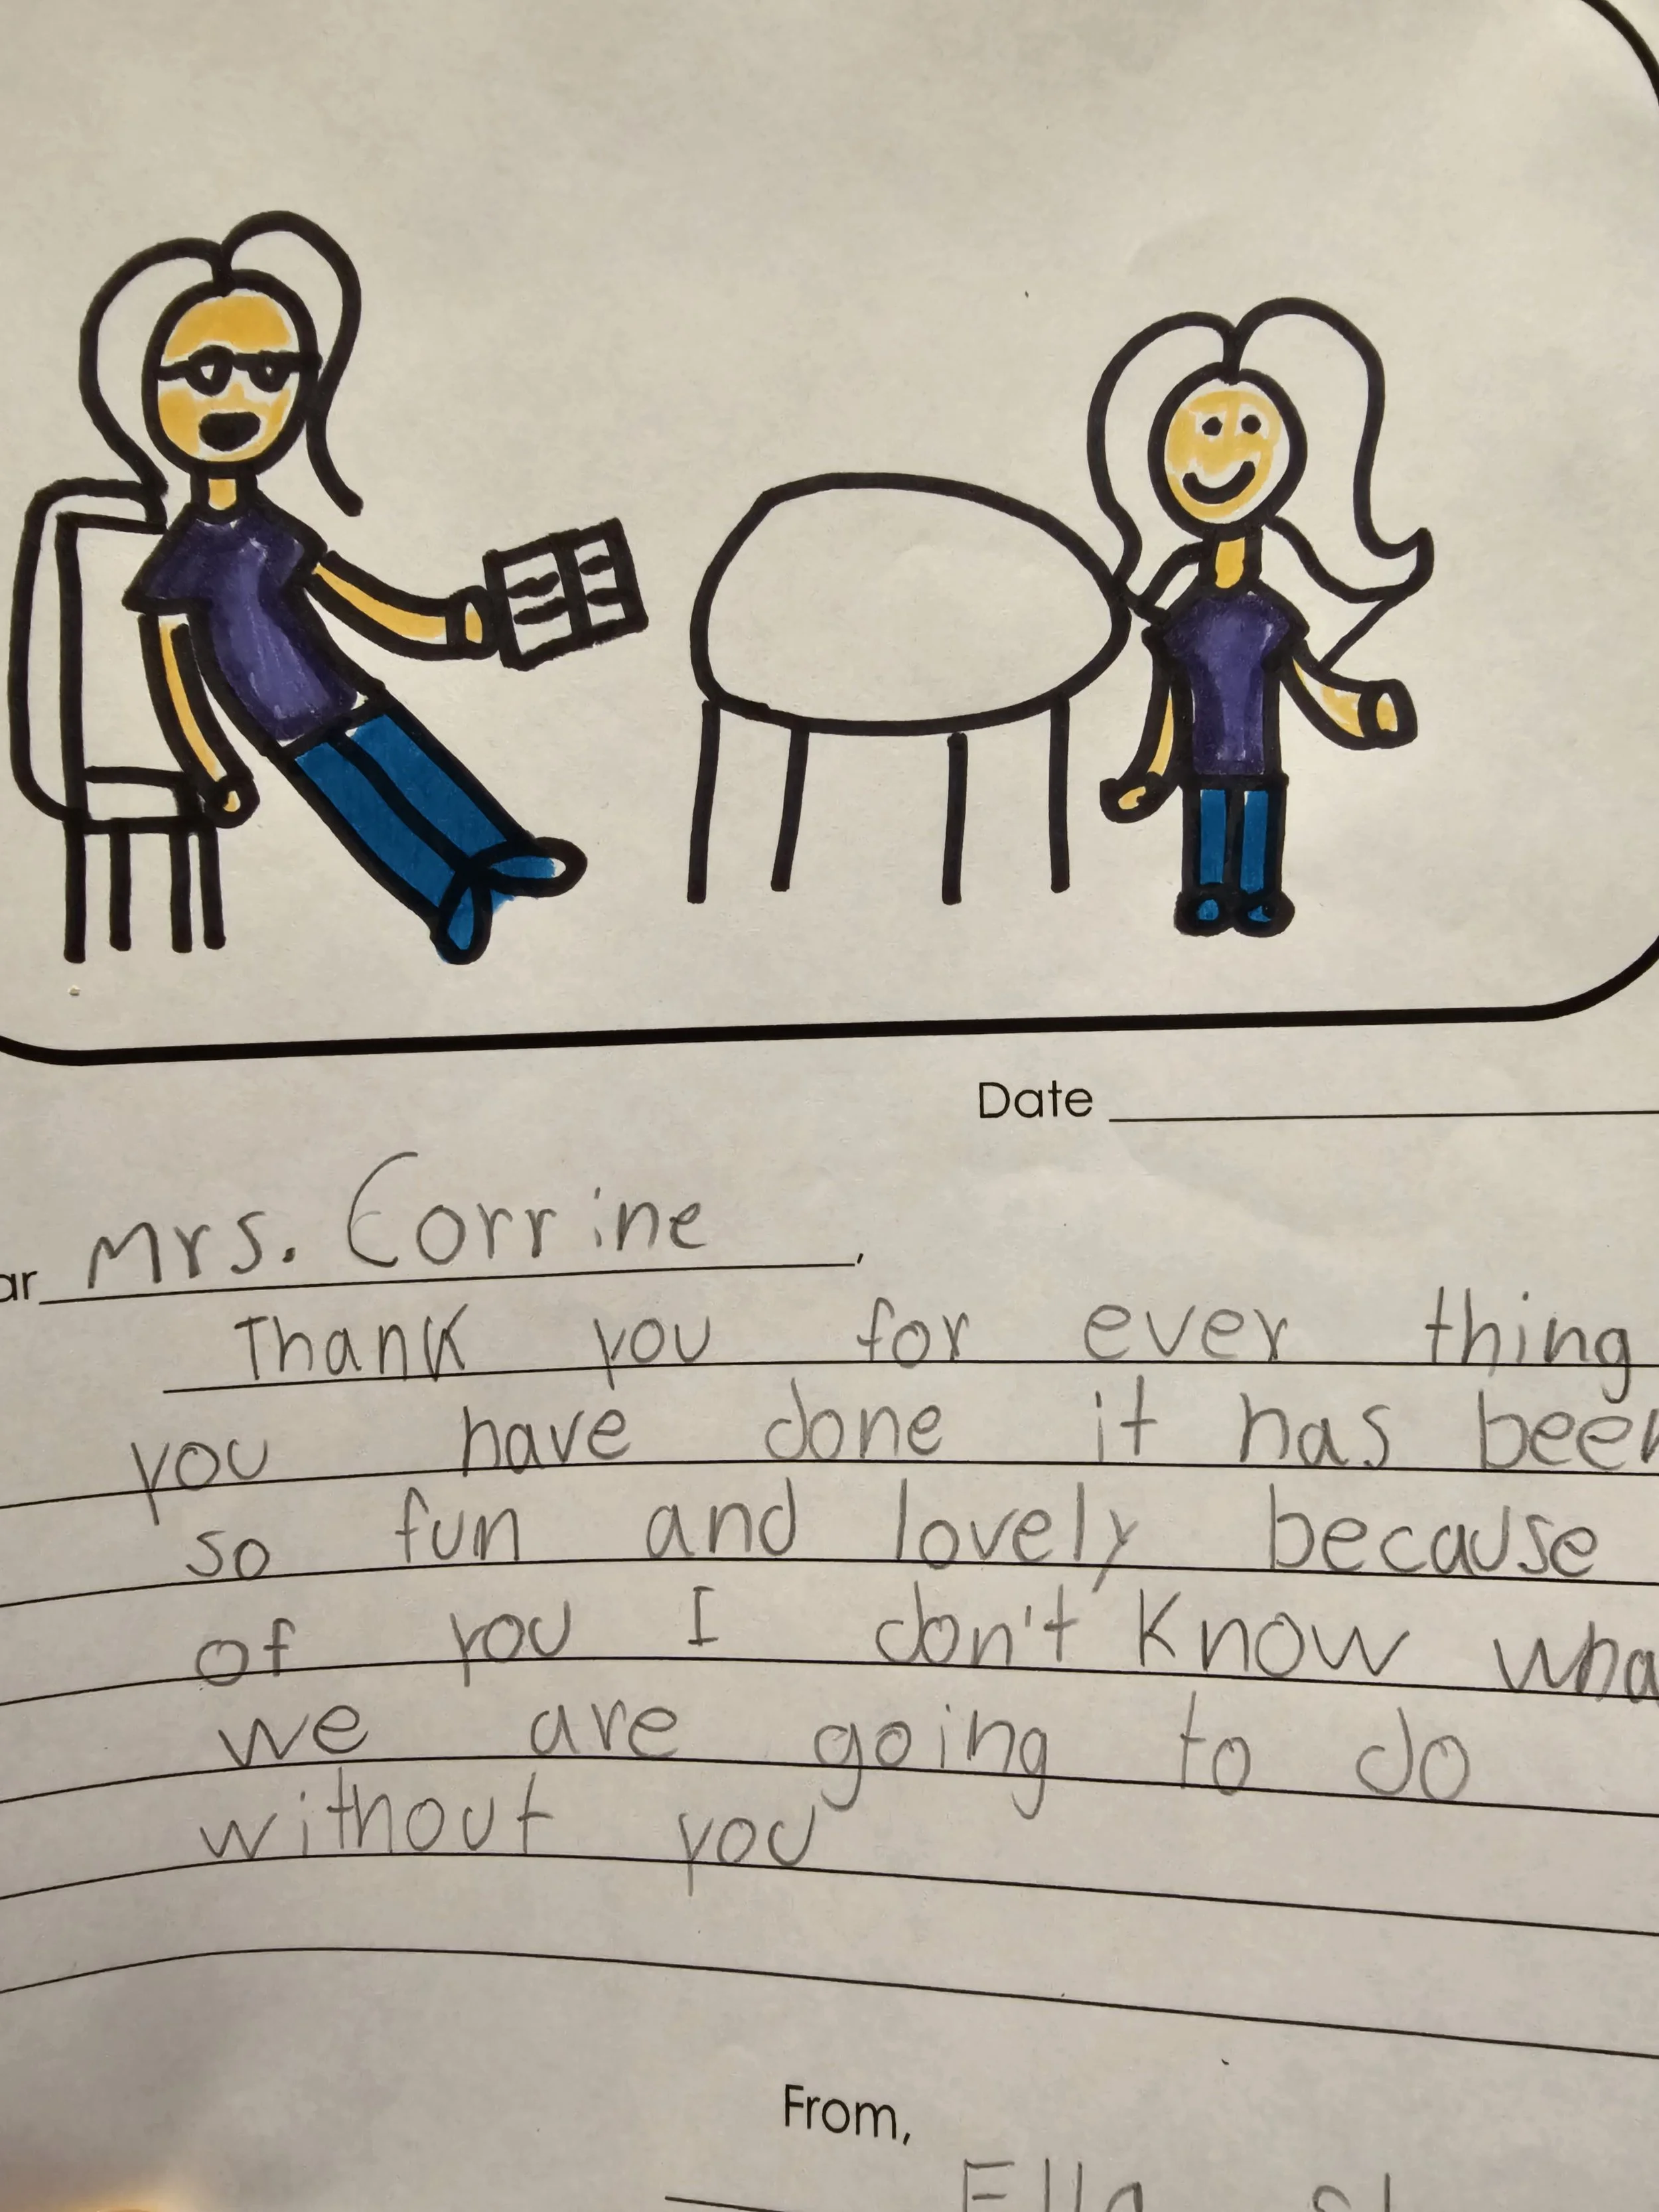 Date
ar Mrs. Corrine,
Thank you for ever thing
you have done it has been
so fun and lovely because
of you I don't know wha
we are going to do
without you
From,
Ella